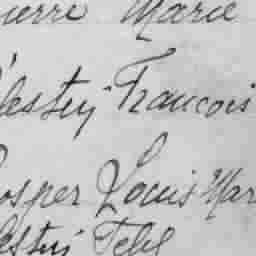 ierre Marie
lestin François
osper Louis Mar
lestin